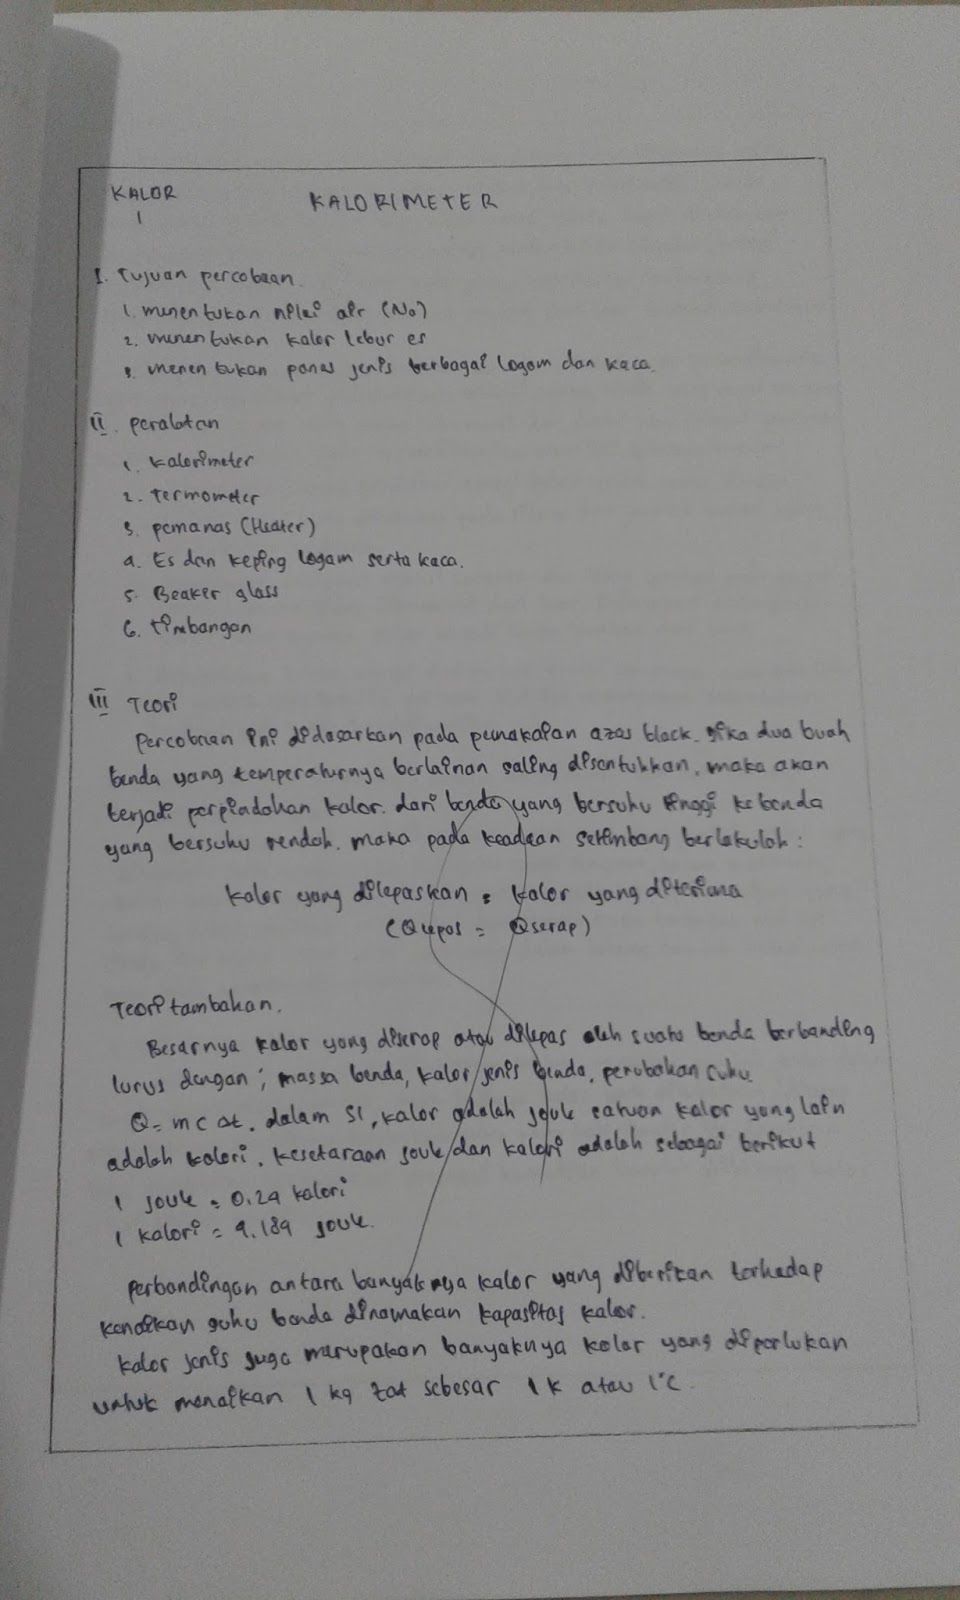 KALOR
1
KALORIMETER
I. Tujuan percobaan.
1. menentukan nilai air (Na)
2. menentukan kalor lebur es
3. menentukan panas jenis berbagai logam dan kaca.
II. peralatan
1. kalorimeter
2. termometer
3. pemanas (Heater)
4. Es dan keping logam serta kaca.
5. Beaker glass
6. timbangan
III Teori
Percobaan ini didasarkan pada pemakaian azas black. jika dua buah
benda yang temperaturnya berlainan saling disentuhkan, maka akan
terjadi perpindahan kalor. dari benda yang bersuhu tinggi ke benda
yang bersuhu rendah. maka pada keadaan setimbang berlakulah :
kalor yang dilepaskan = kalor yang diterima
(Q lepas = Q serap)
Teori tambahan.
Besarnya kalor yang diserap atau dilepas oleh suatu benda berbanding
lurus dengan ; massa benda, kalor jenis benda, perubahan suhu.
Q = m c Δt. dalam SI, kalor adalah joule satuan kalor yang lain
adalah kalori. kesetaraan joule dan kalori adalah sebagai berikut
1 joule = 0.24 kalori
1 kalori = 4.184 joule.
perbandingan antara banyaknya kalor yang diberikan terhadap
kenaikan suhu benda dinamakan kapasitas kalor.
kalor jenis juga merupakan banyaknya kalor yang diperlukan
untuk menaikan 1 kg zat sebesar 1 k atau 1°C.